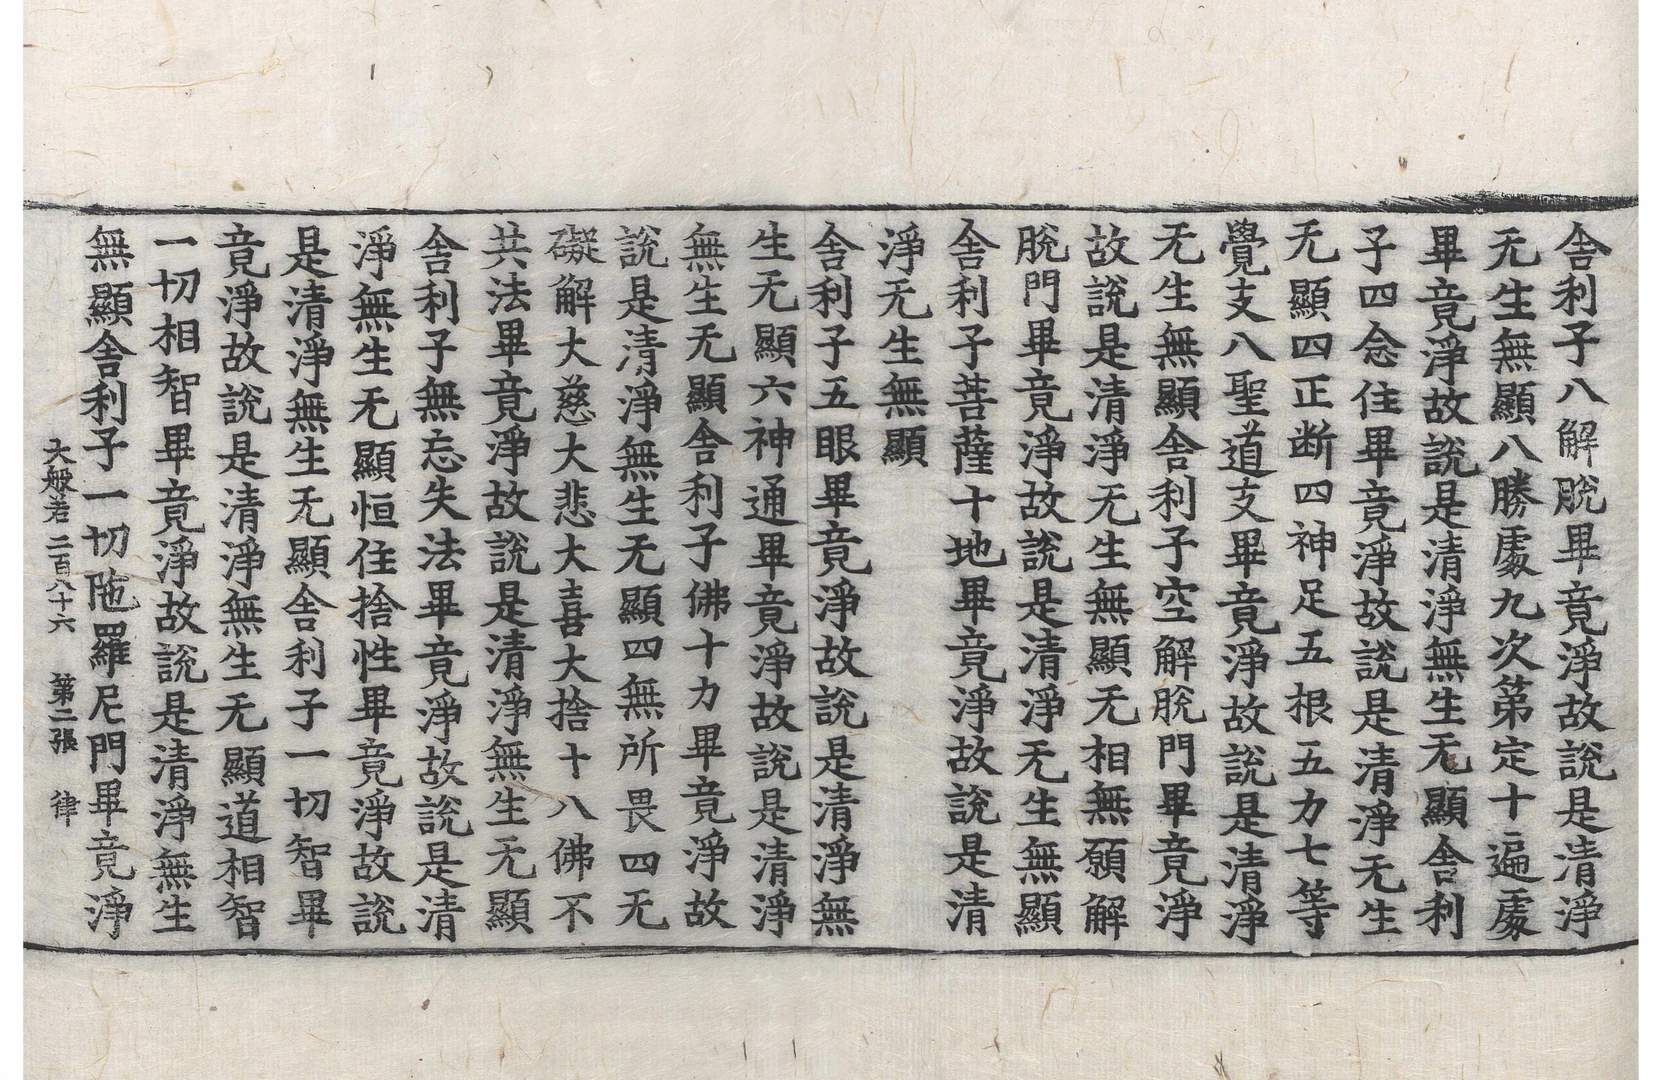 舍利子八解脫畢竟淨故說是清淨
无生無顯八勝處九次第定十遍處
畢竟淨故說是清淨無生无顯舍利
子四念住畢竟淨故說是清淨无生
无顯四正断四神足五根五力七等
覺支八聖道支畢竟淨故說是清淨
无生無顯舍利子空解脫門畢竟淨
故說是清淨无生無顯无相無願解
脫門畢竟淨故說是清淨无生無顯
舍利子菩薩十地畢竟淨故說是清
淨无生無顯
舍利子五眼畢竟淨故說是清淨無
生无顯六神通畢竟淨故說是清淨
無生无顯舍利子佛十力畢竟淨故
說是清淨無生无顯四無所畏四无
礙解大慈大悲大喜大捨十八佛不
共法畢竟淨故說是清淨無生无顯
舍利子無忘失法畢竟淨故說是清
淨無生无顯恒住捨性畢竟淨故說
是清淨無生无顯舍利子一切智畢
竟淨故說是清淨無生无顯道相智
一切相智畢竟淨故說是清淨無生
無顯舍利子一切陁羅尼門畢竟淨
大般若二百八十六 第二張 律